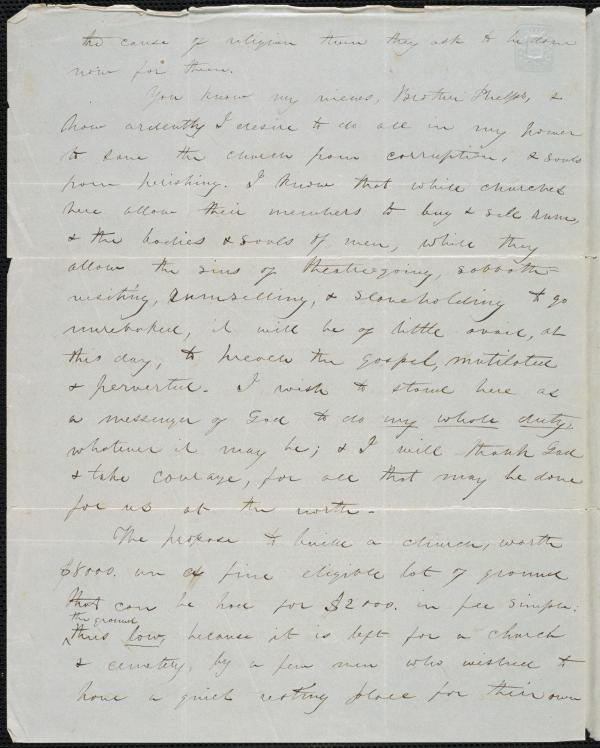 the cause of religion than they ask to be done
now for them.
You know my views, Brother Phelps, &
how ardently I desire to do all in my power
to save the church from corruption, & souls
from perishing. I know that while churches
here allow their members to buy & sell rum,
& the bodies & souls of men, while they
allow the sins of theatregoing, sabbath-
visiting, rumselling, & slaveholding to go
unrebuked, it will be of little avail, at
this day, to preach the gospel, mutilated
& perverted. I wish to stand here as
a messenger of God to do my whole duty,
whatever it may be; & I will thank God
& take courage, for all that may be done
for us at the north.
We propose to build a church, worth
$8000. on a fine eligible lot of ground
that can be had for $2000. in fee simple:
the ground
thus low, because it is left for a church
& cemetery, by a few men who wished to
have a quiet resting place for their own